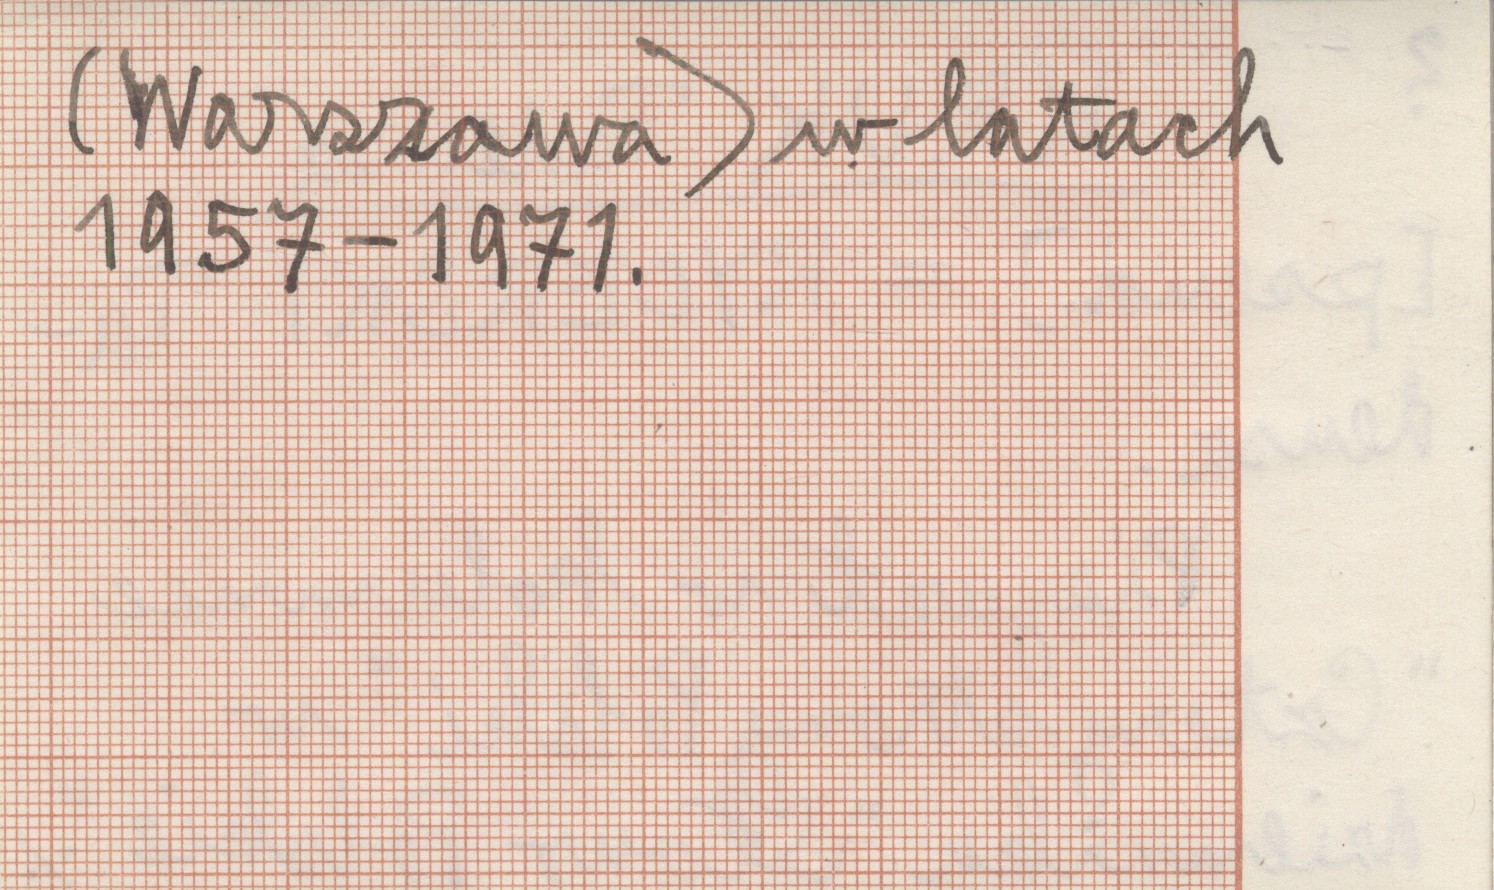 (Warszawa) w latach
1957-1971.